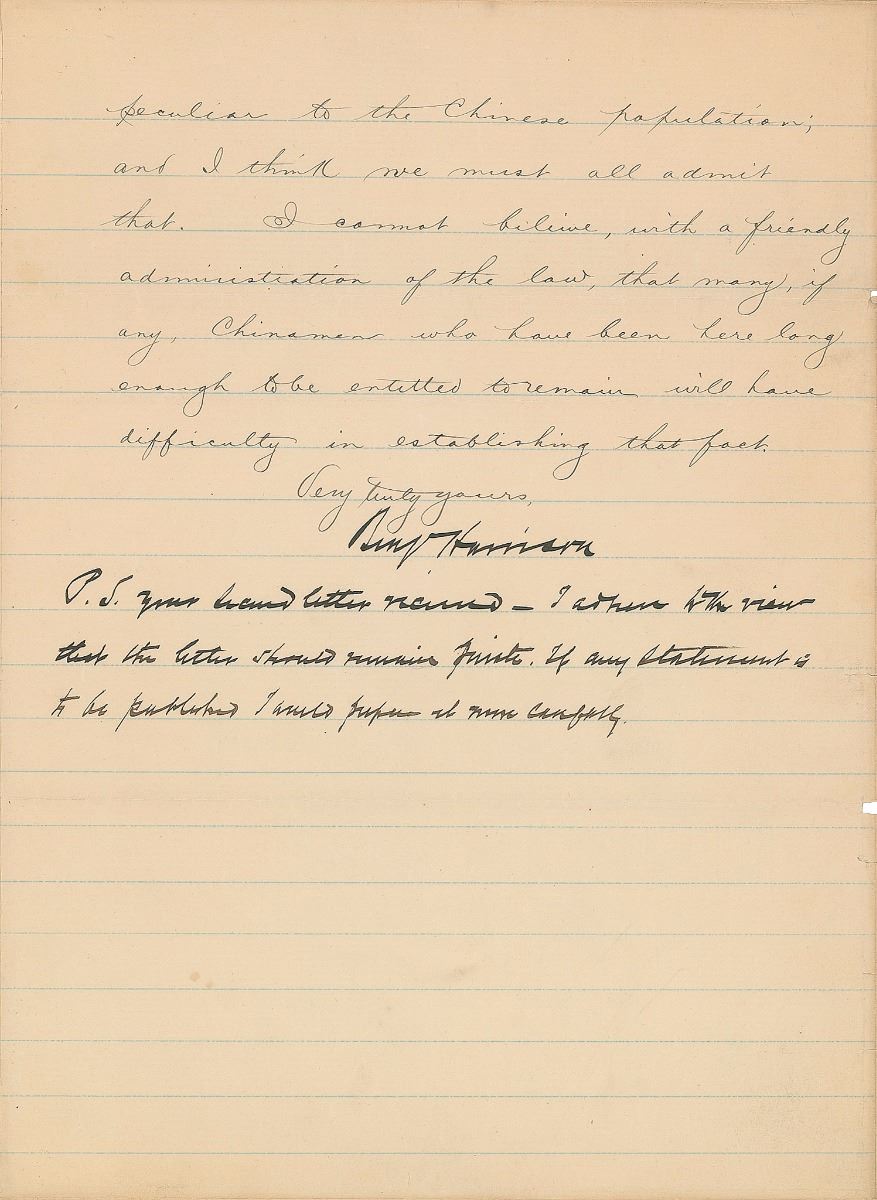 peculiar to the Chinese population;
and I think we must all admit
that. I cannot bilieve, with a friendly
administration of the law, that many, if
any, Chinamen who have been here long
enough to be entitled to remain will have
difficulty in establishing that fact.
Very truly yours,
Benj Harrison
P.S. your second letter received — I adhere to the view
that the letter should remain private. If any statement is
to be published I would prepare it more carefully.